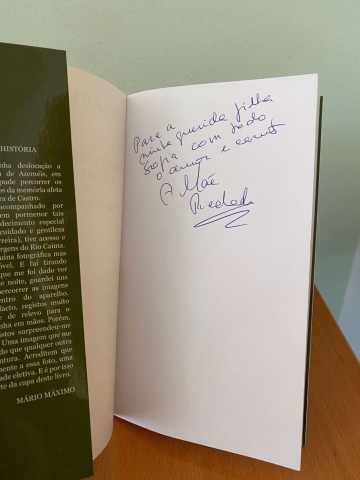 HISTÓRIA
nha deslocação a
a de Azeméis, em
pude percorrer os
os da memória afeta
ra de Castro.
acompanhado por
em pormenor tais
decimento especial
cuidado e gentileza
rreira), tive acesso e
argens do Rio Caima.
uina fotográfica mas
óvel. E fui tirando
que me foi dado ver
de noite, guardei uns
percorrer as imagens
entro do aparelho.
facto, registos muito
e de relevo para o
inha em mãos. Porém,
istos surpreendeu-me
Uma imagem que me
do que qualquer outra
ntura. Acreditem que
mente a essa foto, uma
dade eletiva. E é por isso
rte da capa deste livro.
MÁRIO MÁXIMO
Para a
minha querida filha
Sofia com todo
o amor e
A Mãe
Piedade